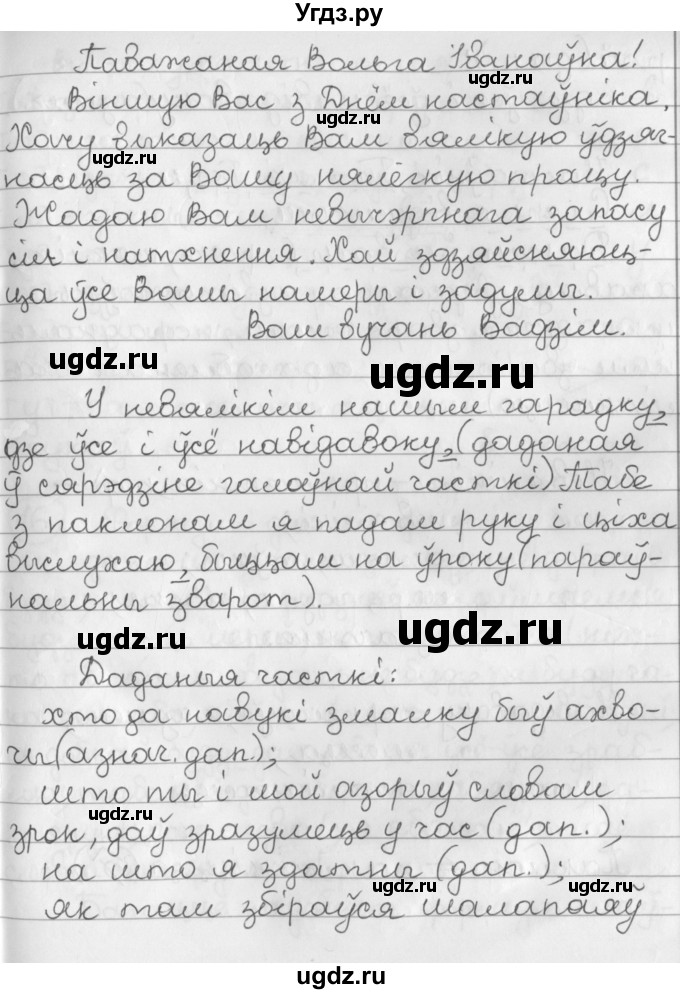 Угдз.ру
Паважаная Вольга Іванаўна!
Віншую Вас з Днём настаўніка.
Хачу выказаць Вам вялікую ўдзяч-
насць за Вашу нялёгкую працу.
Жадаю Вам невычэрпнага запасу
сіл і натхнення. Хай здзяйсняюц-
ца ўсе Вашы намеры і задумы.
Ваш вучань Вадзім.
У невялікім нашым гарадку,
дзе ўсе і ўсё навідавоку, (даданая
ў сярэдзіне галоўнай часткі) Табе
з паклонам я падам руку і ціха
выслухаю, быццам на ўроку (параў-
нальны зварот).
Даданыя часткі:
хто да навукі змалку быў ахво-
чы (азнач. дап.);
што ты і мой азорыў словам
зрок, даў зразумець у час (дап.);
на што я здатны (дап.);
як там збіраўся шалапаяў
ugdz.ru
ugdz.ru
ugdz.ru
ugdz.ru
ugdz.ru
ugdz.ru
ugdz.ru
ugdz.ru
ugdz.ru
ugdz.ru
ugdz.ru